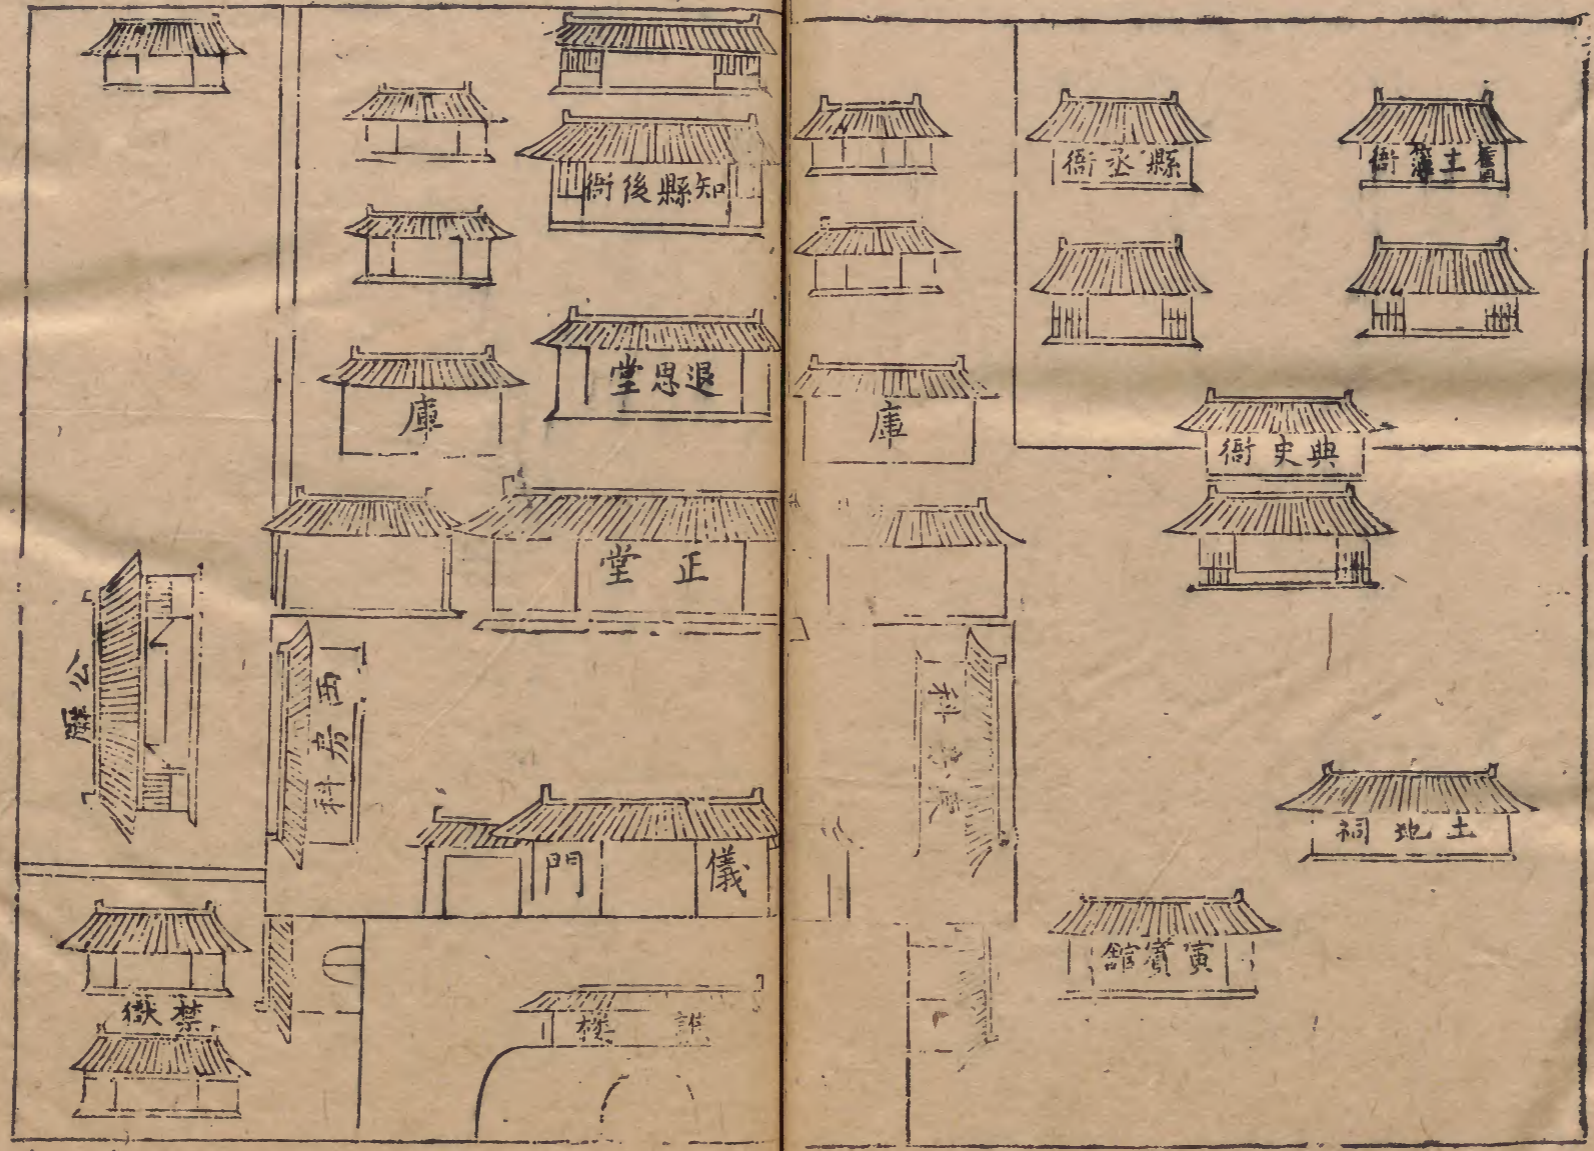 舊主簿衙
縣丞衙
典史衙
土地祠
寅賓館
庫
東房科
知縣後衙
退思堂
正堂
儀門
譙樓
庫
西房科
公廨
禁獄